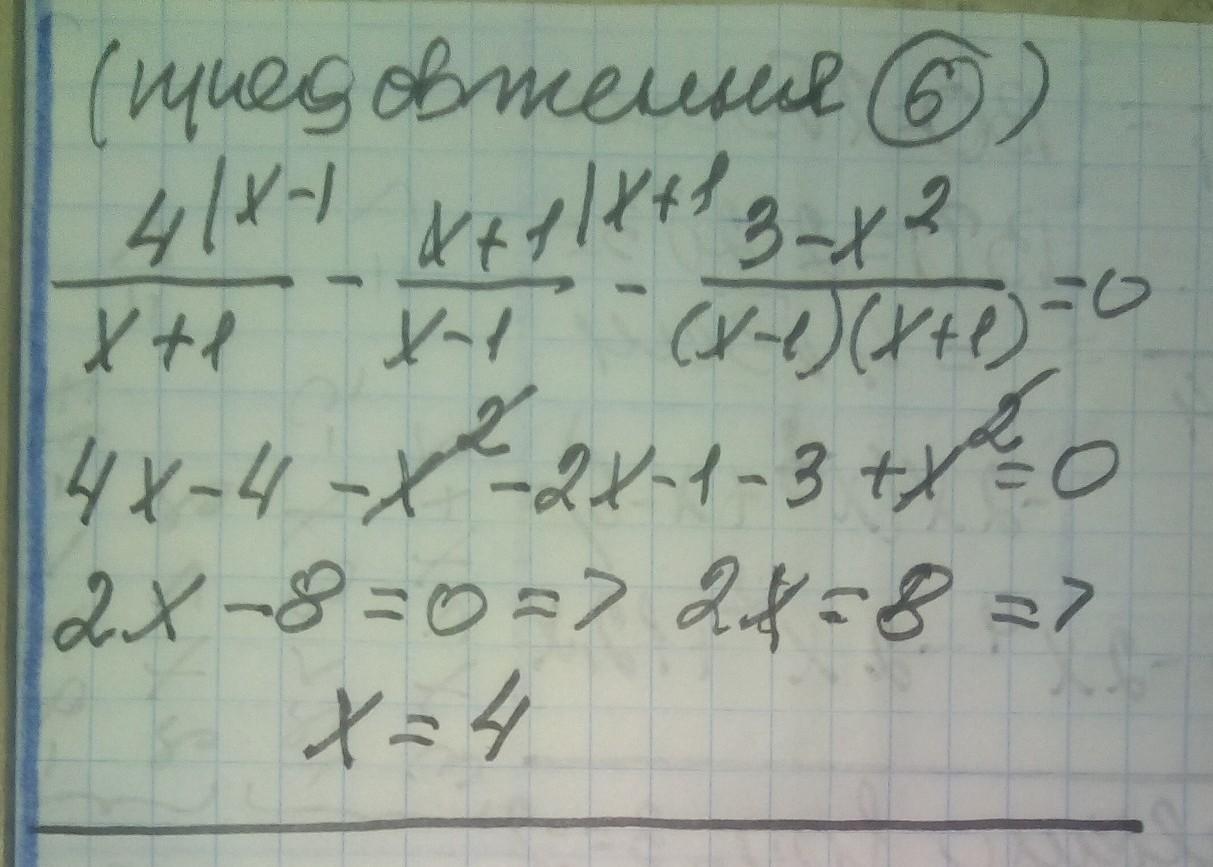 (продовження ⑥)
4|x-1 / x+1 - x+1|x+1 / x-1 - 3-x² / (x-1)(x+1) = 0
4x-4-x²-2x-1-3+x²=0
2x-8=0 => 2x=8 =>
x=4